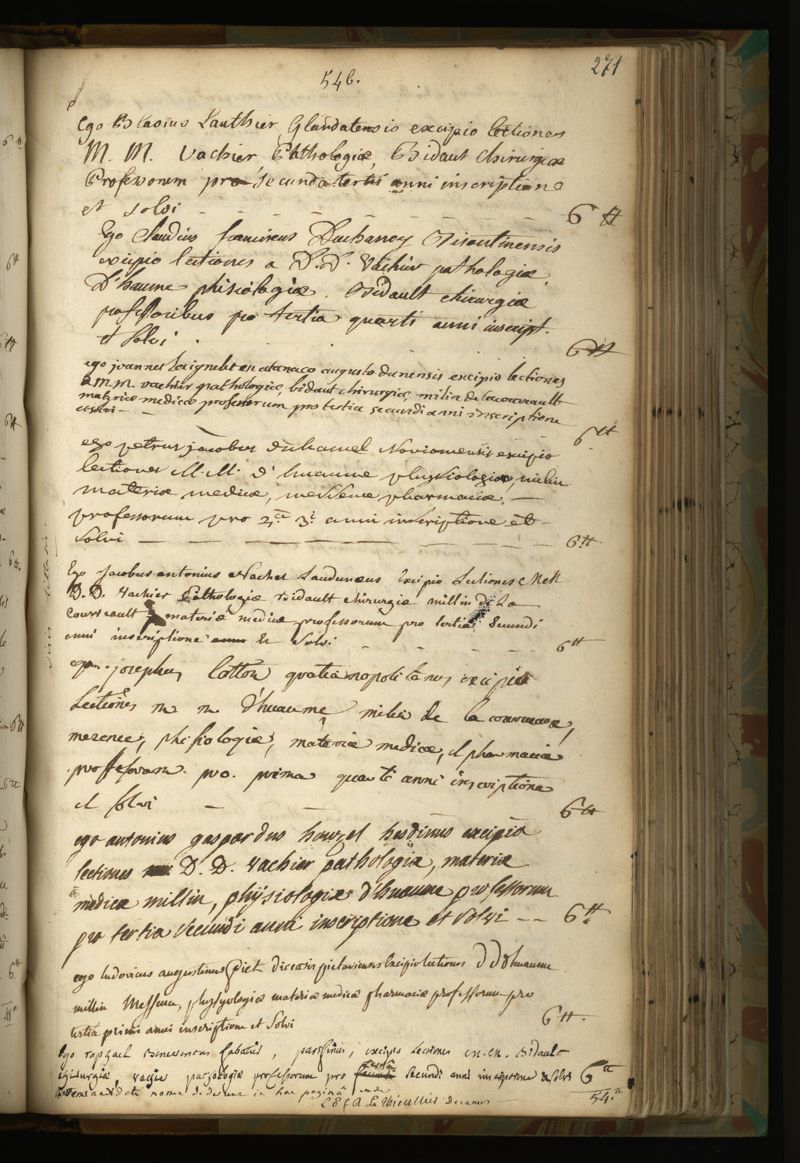 546.
271
Ego Blasius Lauthier, Glandatensis excipio lectiones
M. M. Vachier Pathologiæ, Bidaut chirurgiæ
Professorum pro secunda tertii anni inscriptione
et solvi 6 ₶
Ego Claudius franciscus Duchanoy Visontinensis
excipio lectiones a D.D. Vachier pathologiæ,
D'huaume phisiologiæ, Bidault chirurgiæ
professoribus pro tertia quarti anni inscript.
et solvi. 6 ₶
ego joannes augustodunensis excipio lectiones
D.M.M. vachier pathologiæ, bidaut chirurgiæ, milin de lacourvault
materiæ medicæ professorum pro tertia secundi anni inscriptione
et solvi 6 ₶
ego petrus jacobus duhamel Noviomensis excipio
lectiones M. M. d'huaume physiologiæ, milin
materiæ medicæ, messence pharmaciæ,
professorum pro 2.a 3.i anni inscriptione et
solvi 6 ₶
Ego jacobus antonius Nachet Laudunæus Excipio Lectiones MM
D.D. Vachier Pathologiæ Bidault chirurgiæ millin de La
Courveault materiæ medicæ professorum pro tertia secundi
anni inscriptione et solvi 6 ₶
ego josephus lotton gratianopolitanus excipio
Lectiones m m d'huaume milin de la
phisiologiæ, materiæ medicæ, et pharmaciæ
professorum pro prima quarti anni inscriptione
et solvi 6 ₶
ego antonius gaspardus houzel hesdinus excipio
lectiones D. D. vachier pathologiæ, materiæ
medicæ millin, physiologiæ d'huaume professorum
pro tertia secundi anni inscriptione et solvi 6 ₶
ego ludovicus augustinus piet pictaviensis Excipio lectiones d'huaume
millin Messence, physyologiæ materiæ medicæ pharmaciæ professorum pro
tertia primi anni inscriptione et solvi 6 ₶
Ego raphael bienvenutus sabatier, parisinus, excipio lectiones m.m. Bidault
chirurgiæ, vachier pathologiæ professorum pro tertiâ secundi anni inscriptione et solvi 6 ₶
novem candidati nomen dedere in hac paginâ unde 54 ₶
Le Thieullier decanus